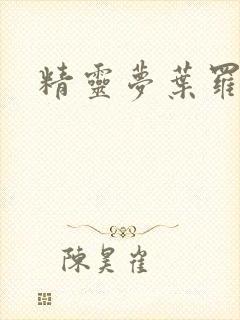 精靈夢葉羅
陳昊雀